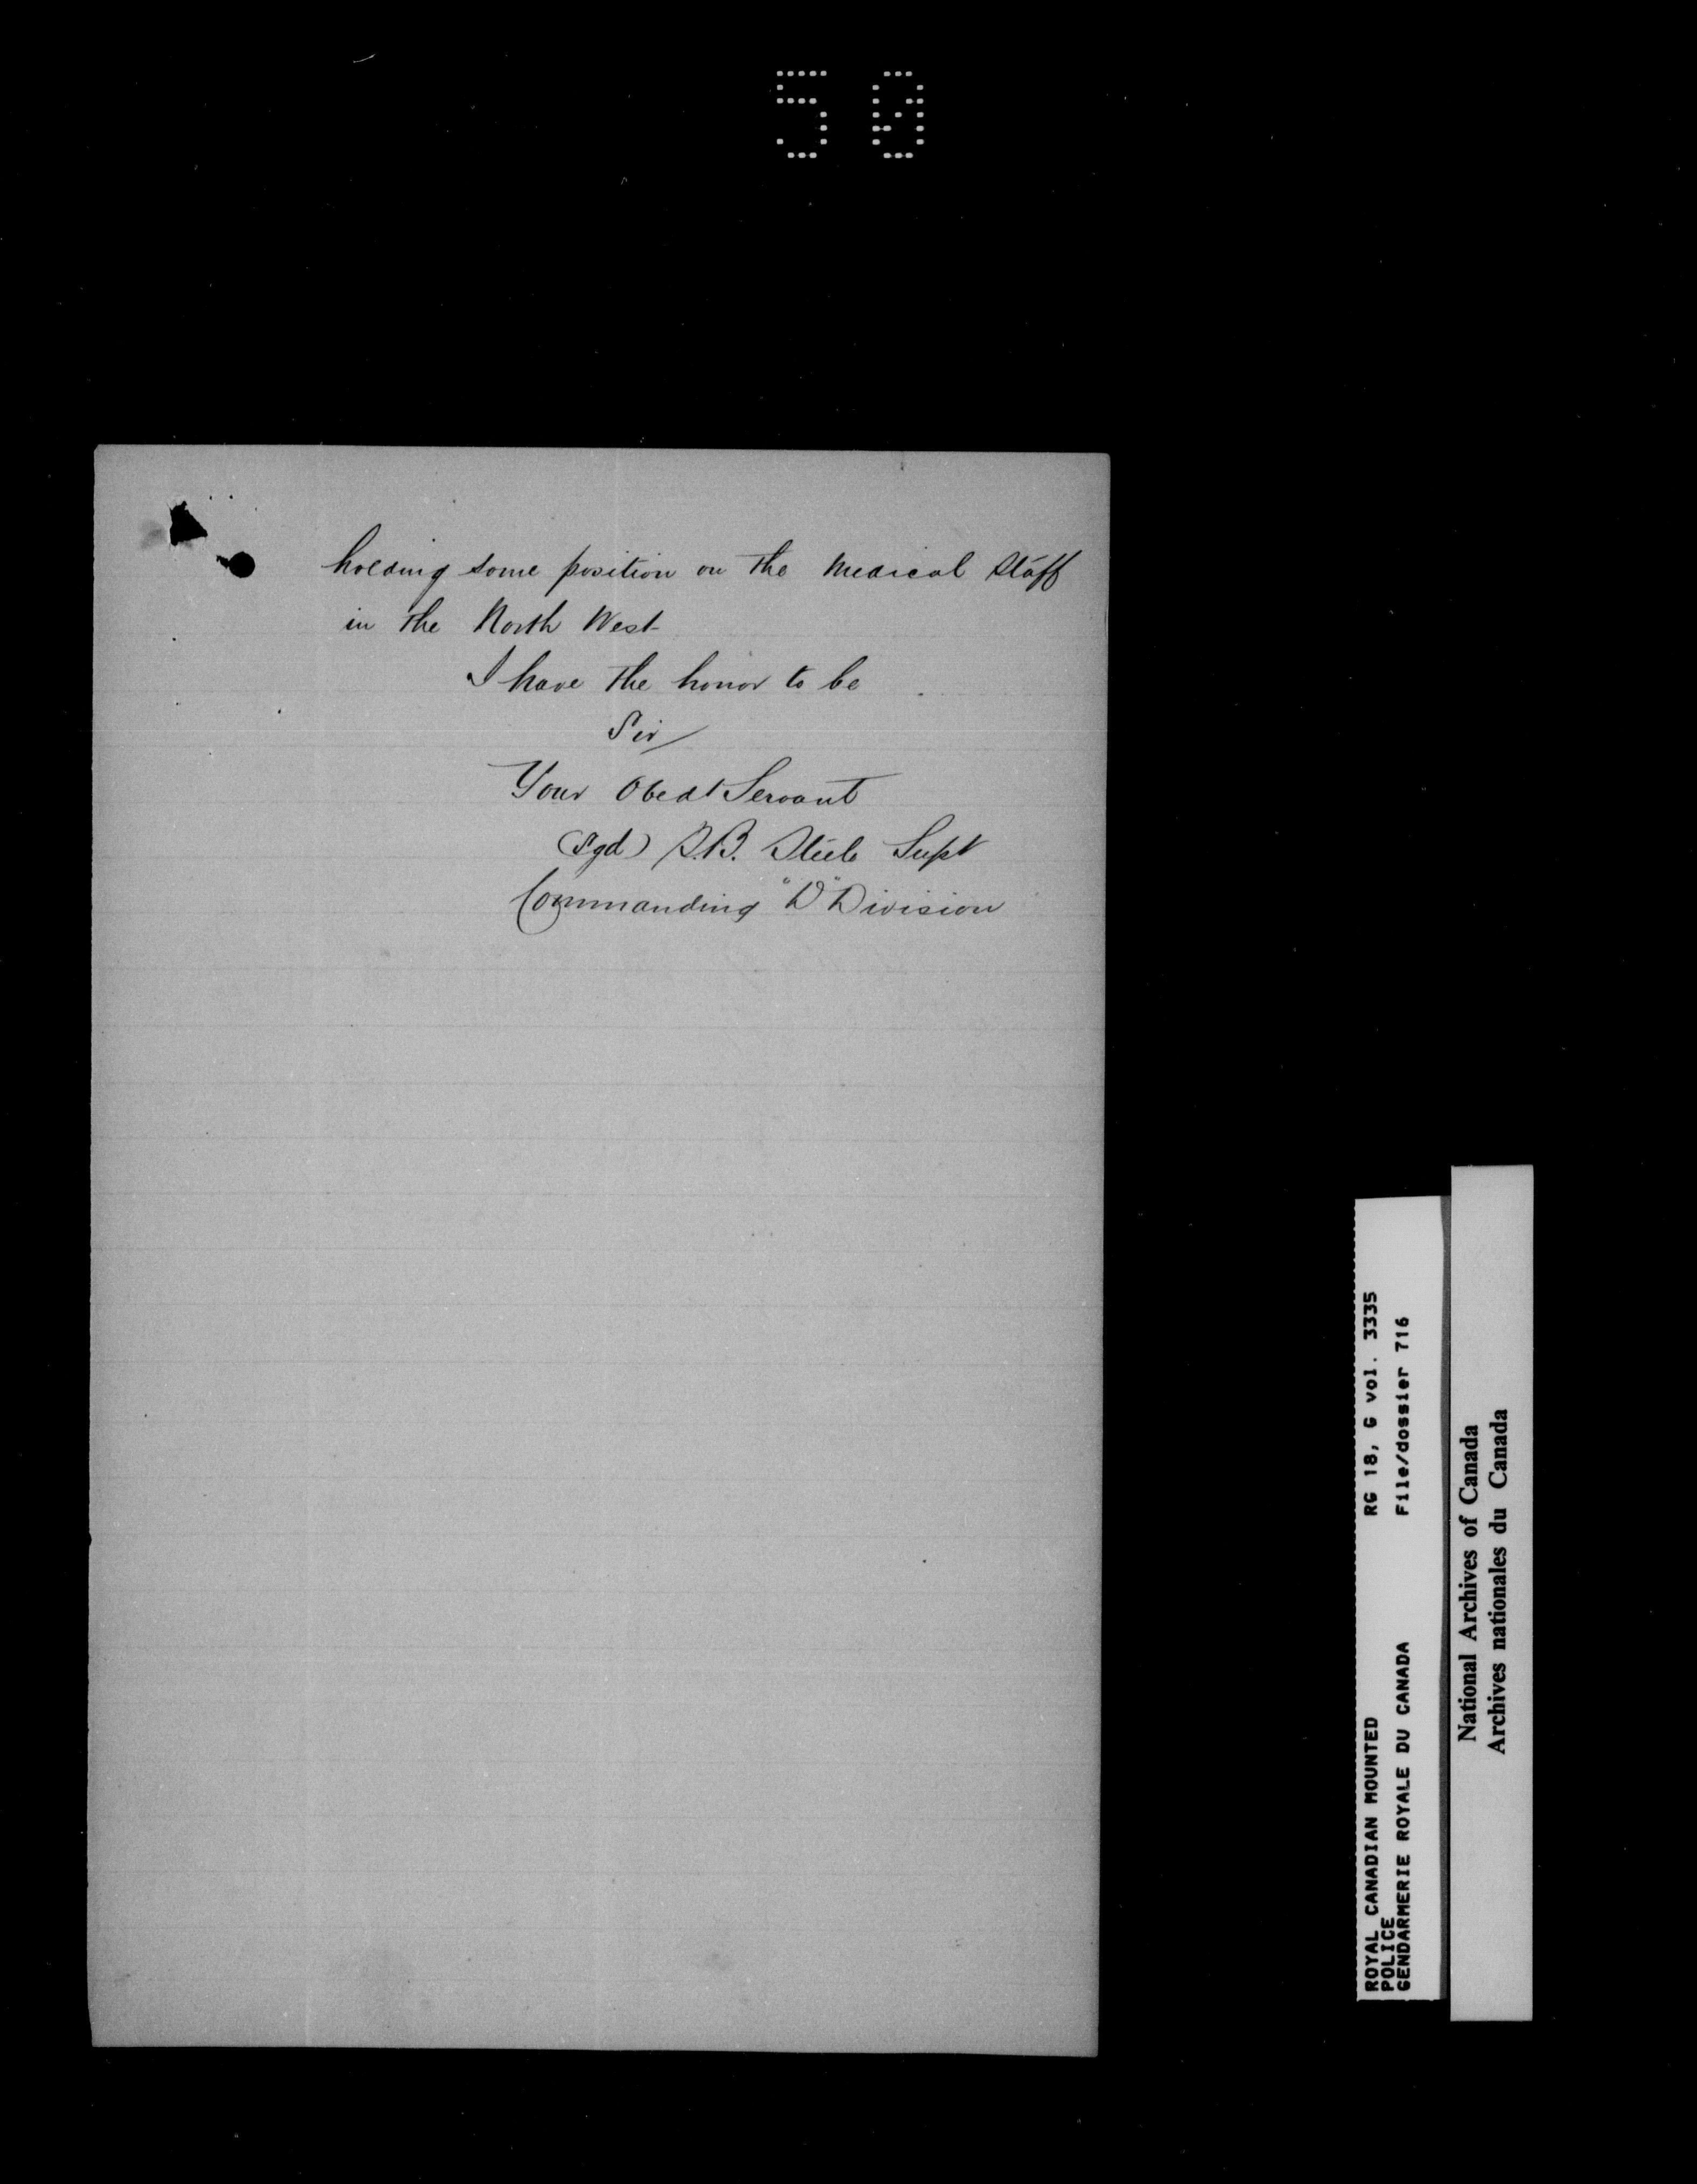 50
holding some position on the Medical Staff
in the North West
I have the honor to be
Sir
Your Obedt Servant
(Sgd) S.B. Steele Supt
Commanding "D" Division
ROYAL CANADIAN MOUNTED
POLICE
GENDARMERIE ROYALE DU CANADA
RG 18, G vol. 3335
File/dossier 716
National Archives of Canada
Archives nationales du Canada